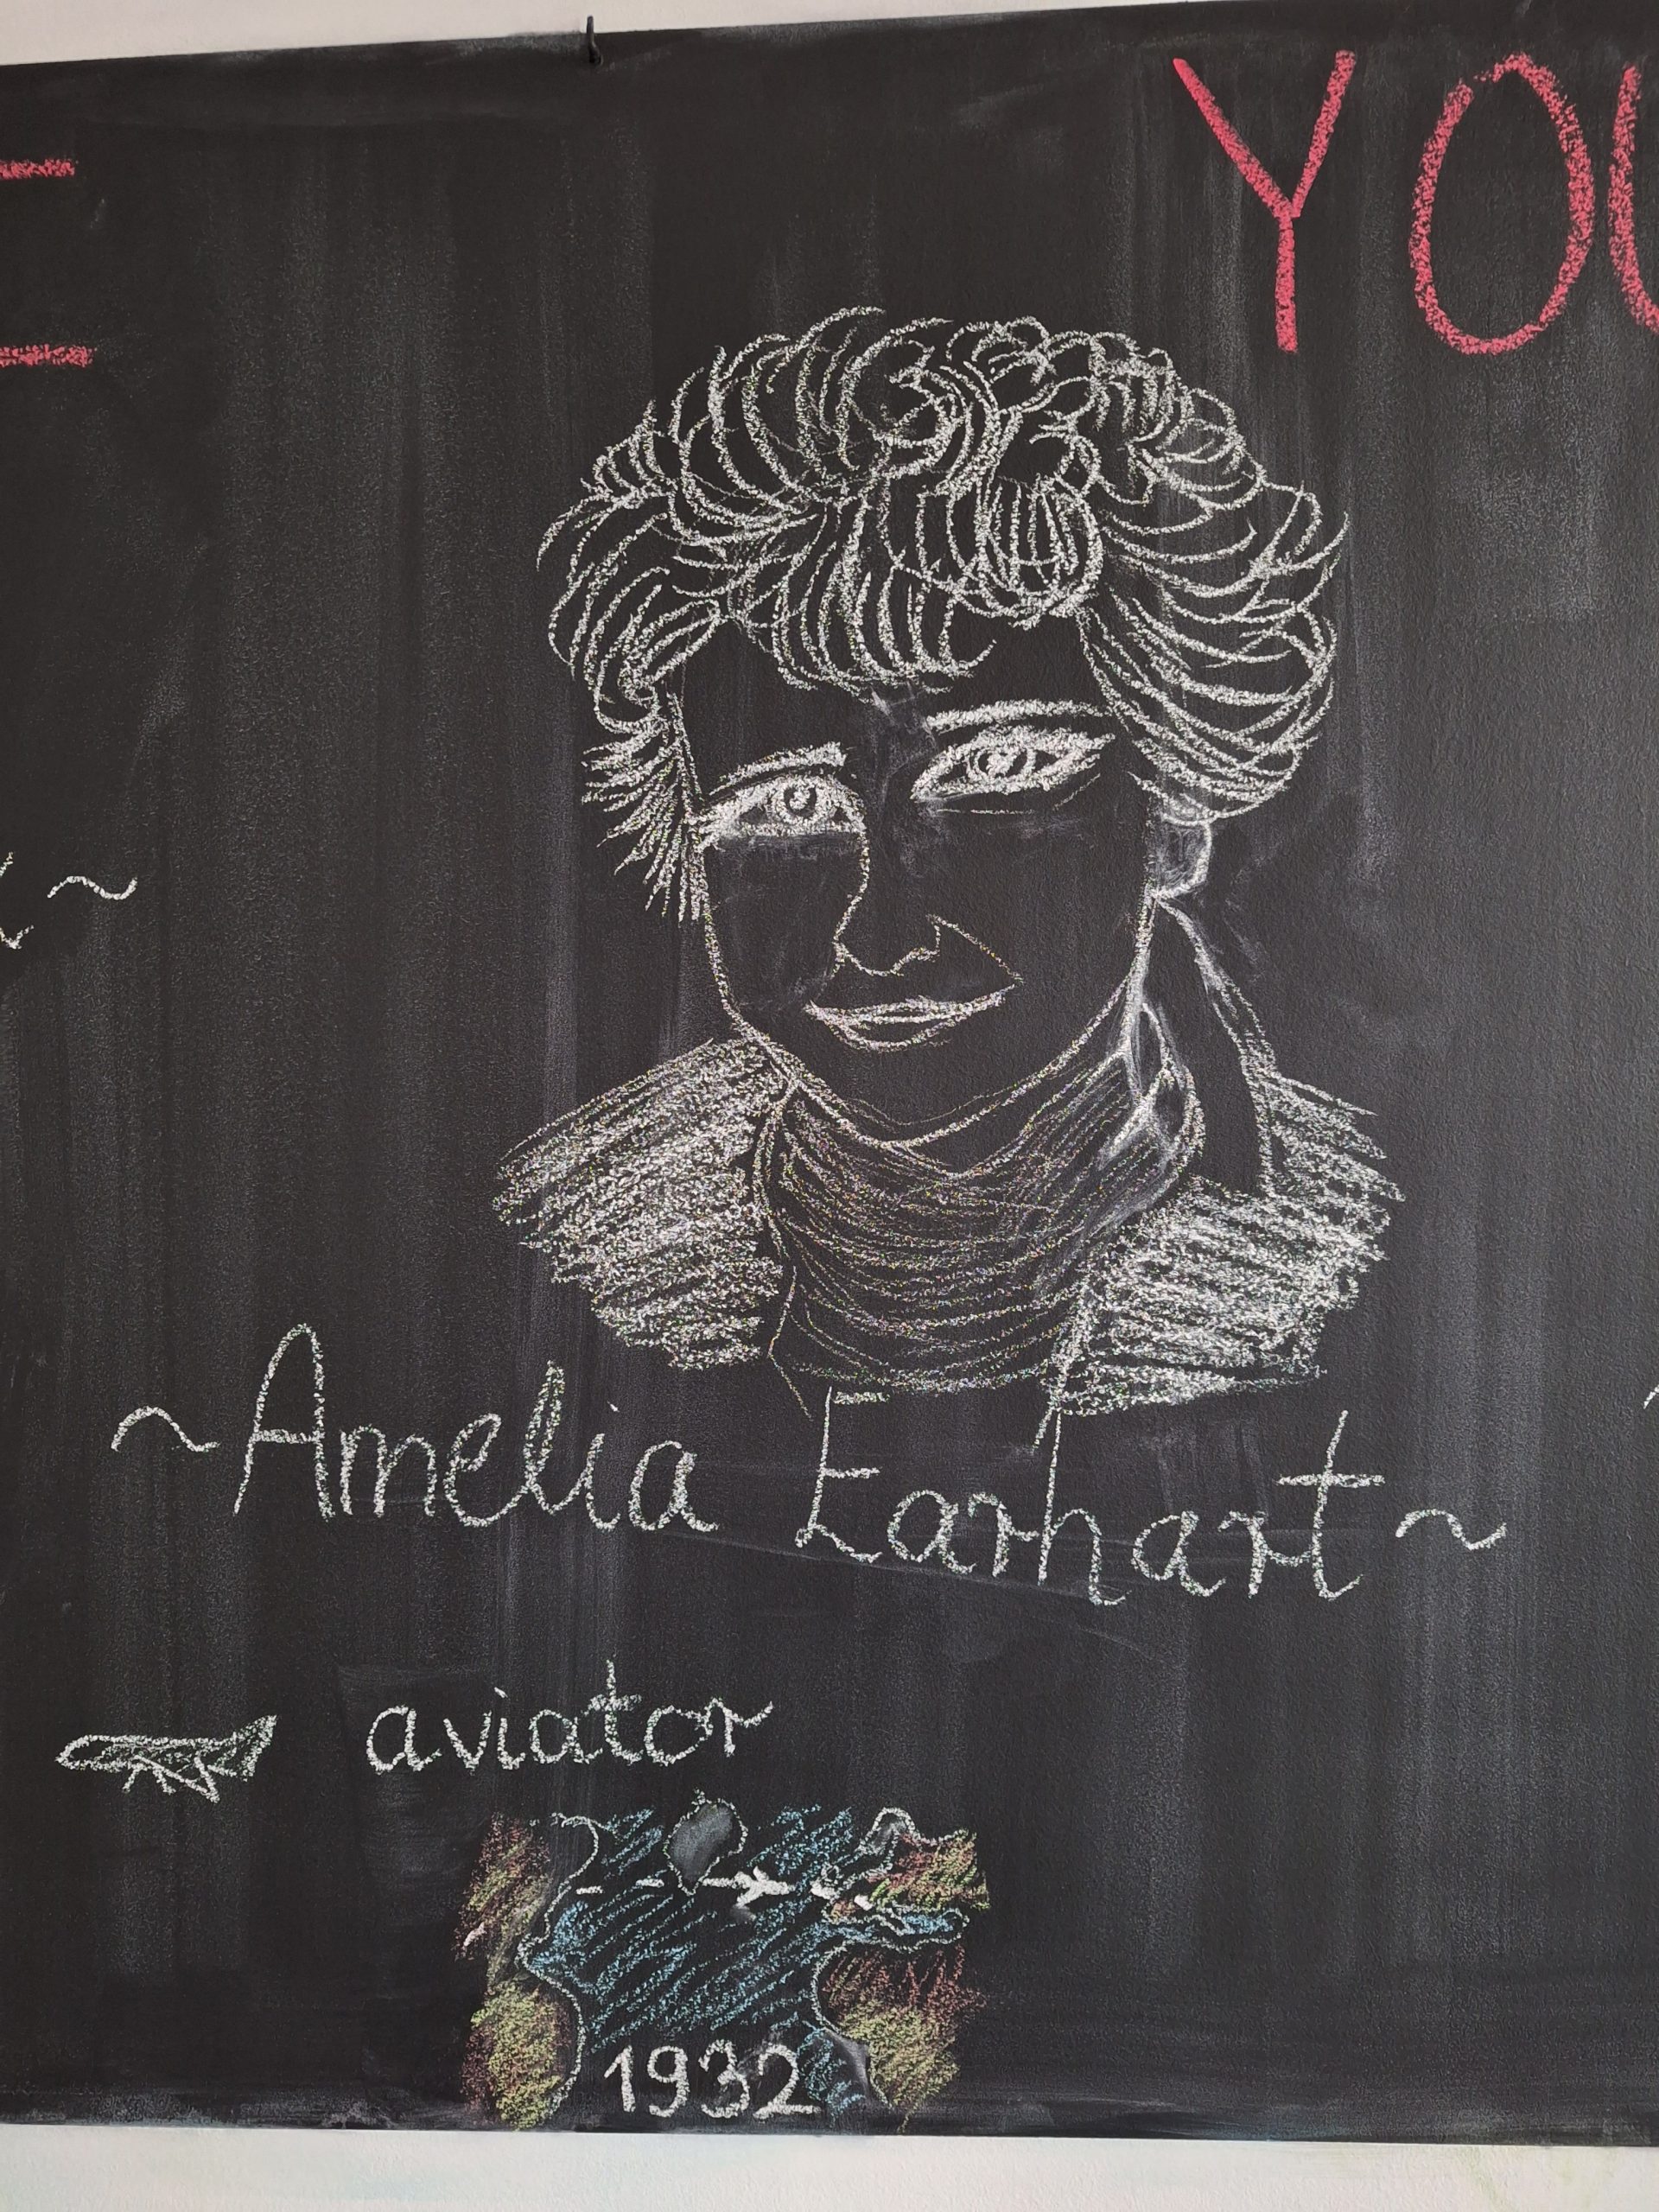 YOU
~Amelia Earhart~
aviator
1932